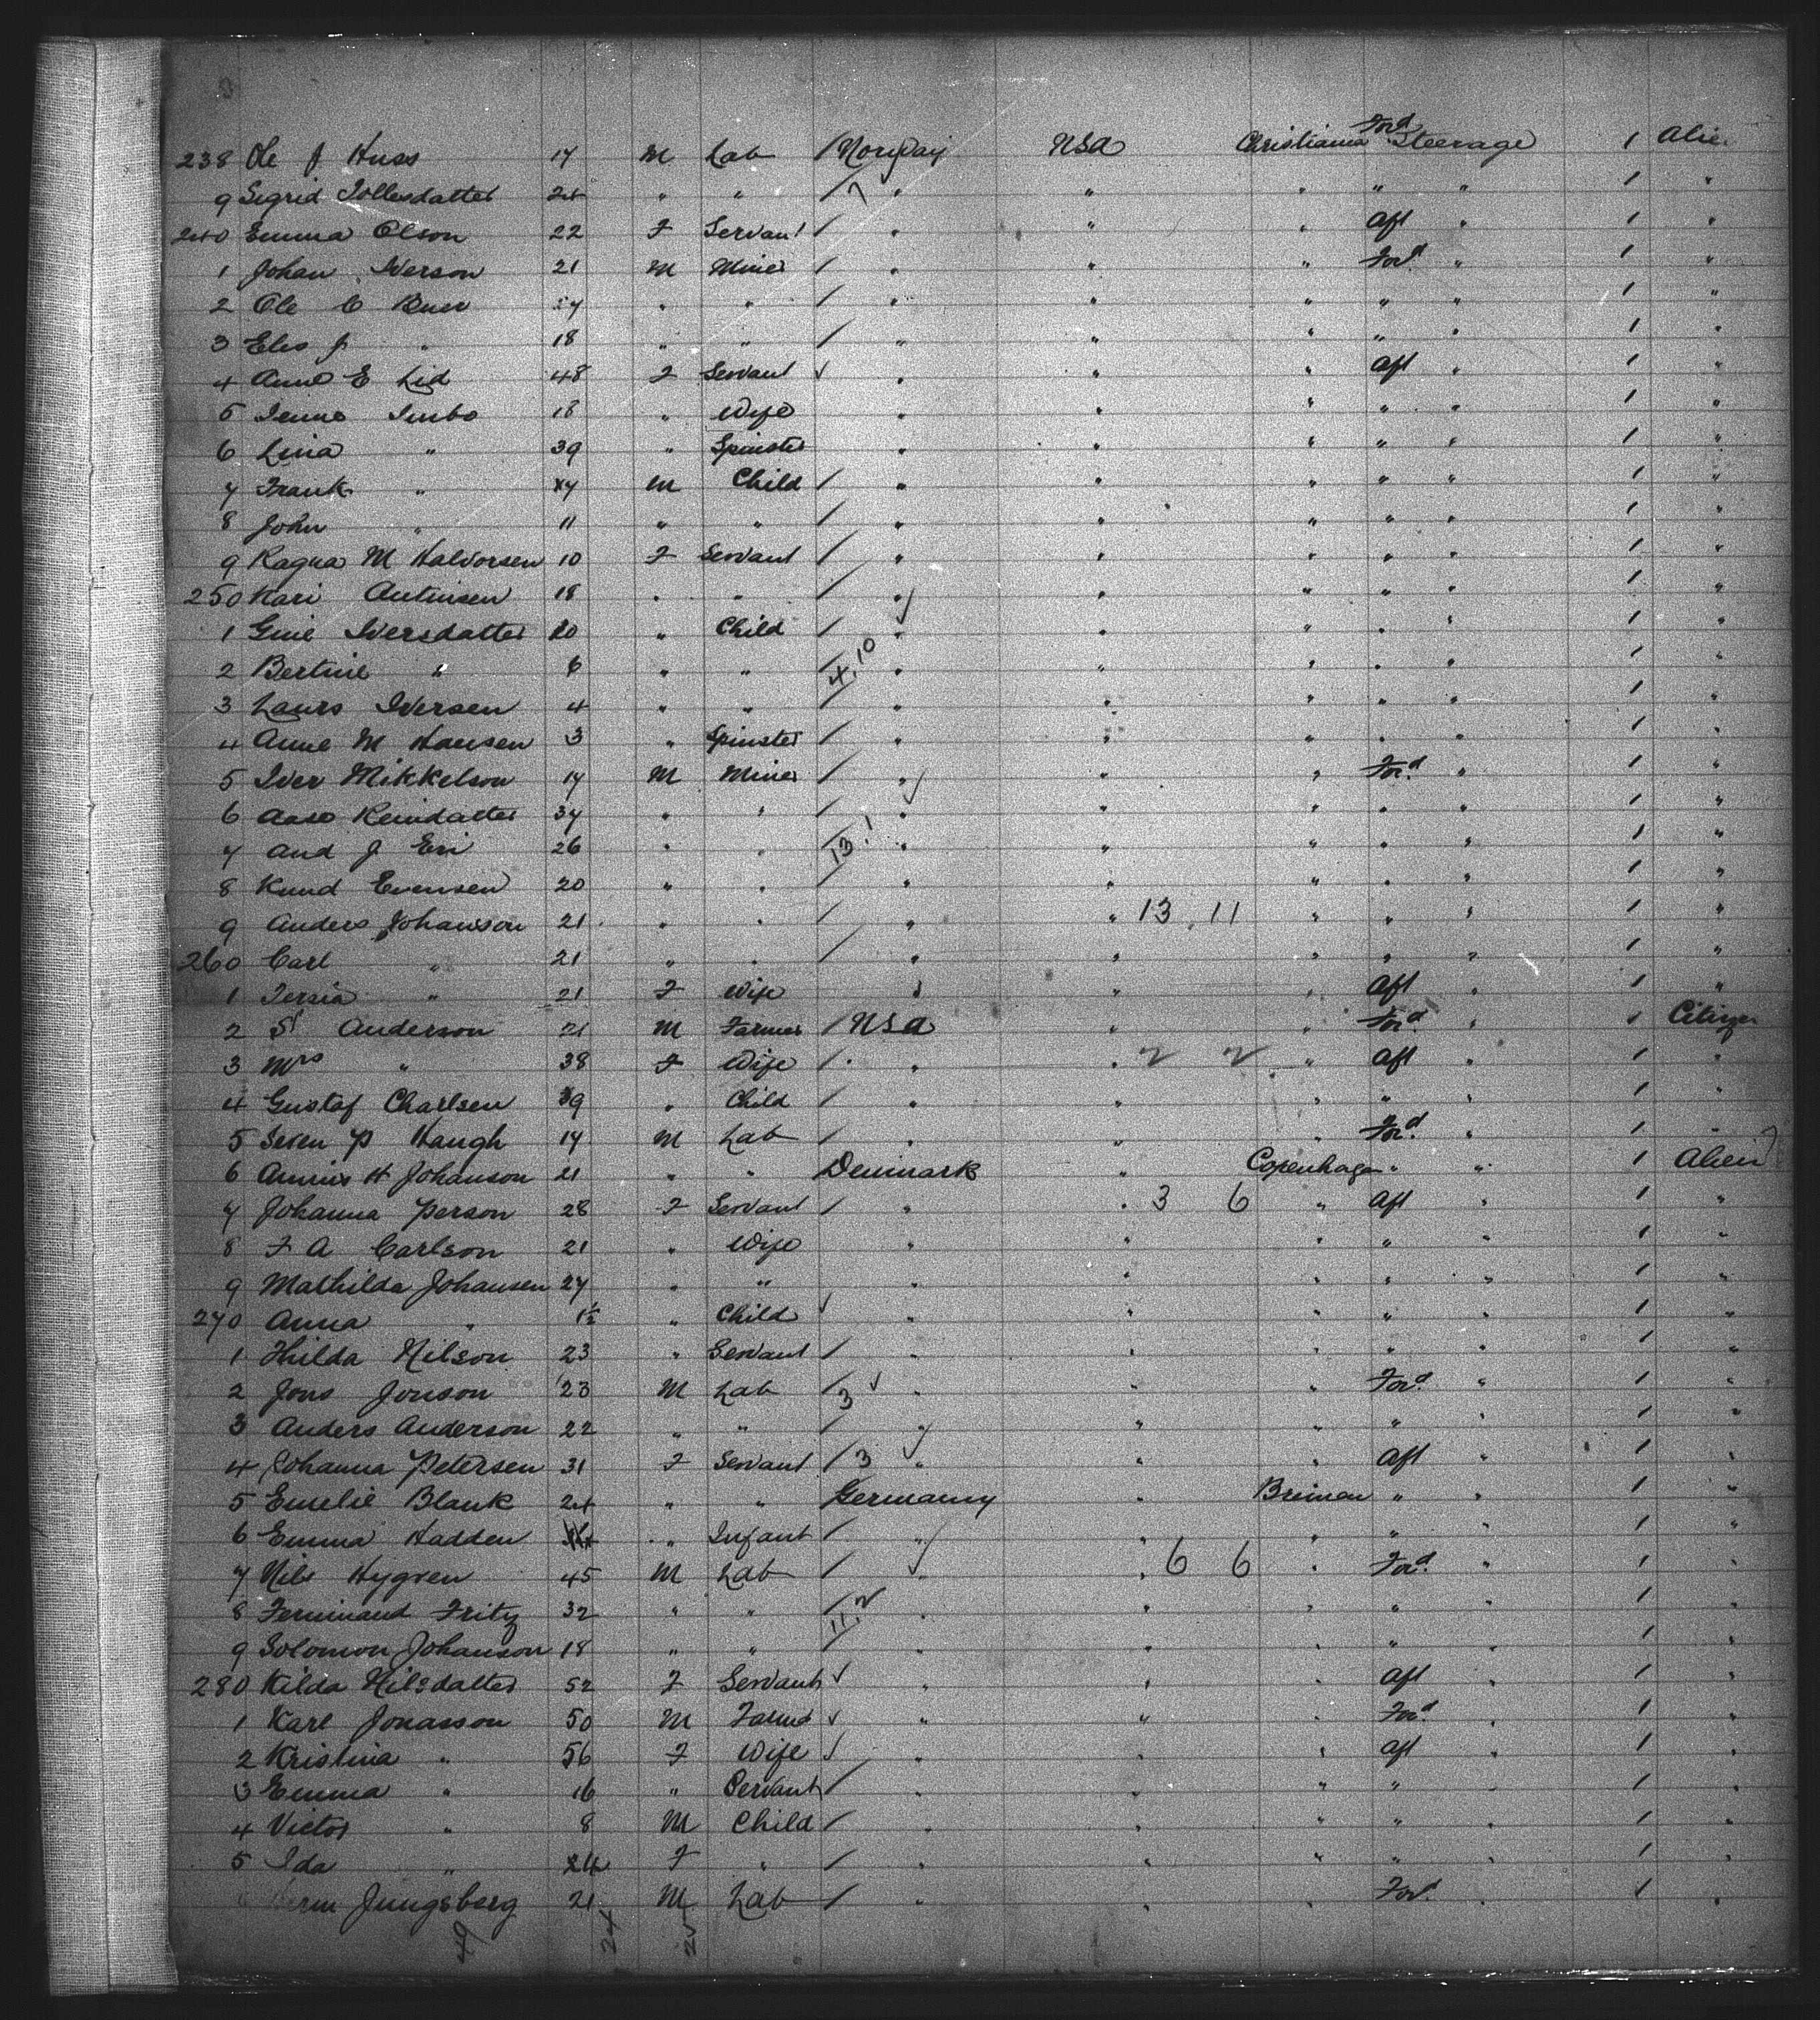 238 Ole J Huss 17 M Lab / Norway USA Christiania Ford Steerage 1 Alie
9 Sigrid Tollesdatter 24 " " / 7 " " " " " 1 "
240 Emma Olson 22 F Servant / " " " Aft " 1 "
1 Johan Iverson 21 M Miner / " " " Ford " 1 "
2 Ole C Buer 27 " " / " " " " " 1 "
3 Eles J " 18 " " / " " " " " 1 "
4 Anne E Lid 48 F Servant ✓ " " " Aft " 1 "
5 18 " Wife " " " " " 1 "
6 Lina " 39 " Spinster " " " " " 1 "
7 Frank " M Child / " " " " " 1 "
8 John " 11 " " / " " " " " 1 "
9 Ragna M Halvorsen 10 F Servant / " " " " " 1 "
250 Kari Antinsen 18 " " / " " " " " 1 "
1 Gine Iversdatter 20 " Child / " " " " " 1 "
2 Bertine " 6 " " / 4.10 " " " " " 1 "
3 Laurs Iversen 4 " " / " " " " " 1 "
4 Anne M Hansen 3 " Spinster / " " " " " 1 "
5 Iver Mikkelson 17 M Miner / " " " Ford " 1 "
6 Aase Reindatter 37 " " / " " " " " 1 "
7 And J Eri 26 " " / 13.1 " " " " " 1 "
8 Knud Evensen 20 " " / " " " " " 1 "
9 Anders Johansson 21 " " / " " 13 11 " " " 1 "
260 Carl " 21 " " / " " " " " 1 "
1 " 21 F Wife " " " Aft " 1 "
2 Anderson 21 M Farmer / USA " " Ford " 1 Citizen
3 Mrs " 38 F Wife / " " 2 2 " Aft " 1 "
4 Gustaf Charlsen 9 " Child / " " " " " 1 "
5 Seven P Haugh 17 M Lab / " " " Ford " 1 "
6 H Johanson 21 " " Denmark " Copenhagen " " 1 Alien
7 Johanna Person 28 F Servant / " " 3 6 " Aft " 1 "
8 F A Carlson 21 " Wife " " " " " 1 "
9 Mathilda Johansen 27 " " " " " " " 1 "
270 Anna " 1½ " Child ✓ " " " " " 1 "
1 Hilda Nilson 23 " Servant / " " " " " 1 "
2 Jons Jonson 23 M Lab / 3 ✓ " " " Ford " 1 "
3 Anders Anderson 22 " " / " " " " " 1 "
4 Johanna Petersen 31 F Servant / 3 ✓ " " " Aft " 1 "
5 Emelie Blank 24 " " Germany " Breman " " 1 "
6 Emma Hadden " Infant / " " " " " 1 "
7 Nils Hygren 45 M Lab / ✓ " " 6 6 " Ford " 1 "
8 Ferninand Fritz 32 " " / 11.2 " " " " " 1 "
9 Solomon Johanson 18 " " / " " " " " 1 "
280 Kilda Nilsdatter 52 F Servant ✓ " " " Aft " 1 "
1 Karl Jonasson 50 M Farmer ✓ " " " Ford " 1 "
2 Kristina " 56 F Wife ✓ " " " Aft " 1 "
3 Emma " 16 " Servant / " " " " " 1 "
4 Victor " 8 M Child / " " " " " 1 "
5 Ida " 24 F " / " " " " " 1 "
Jungsberg 21 M Lab / " " " Ford " 1 "
49 24 25